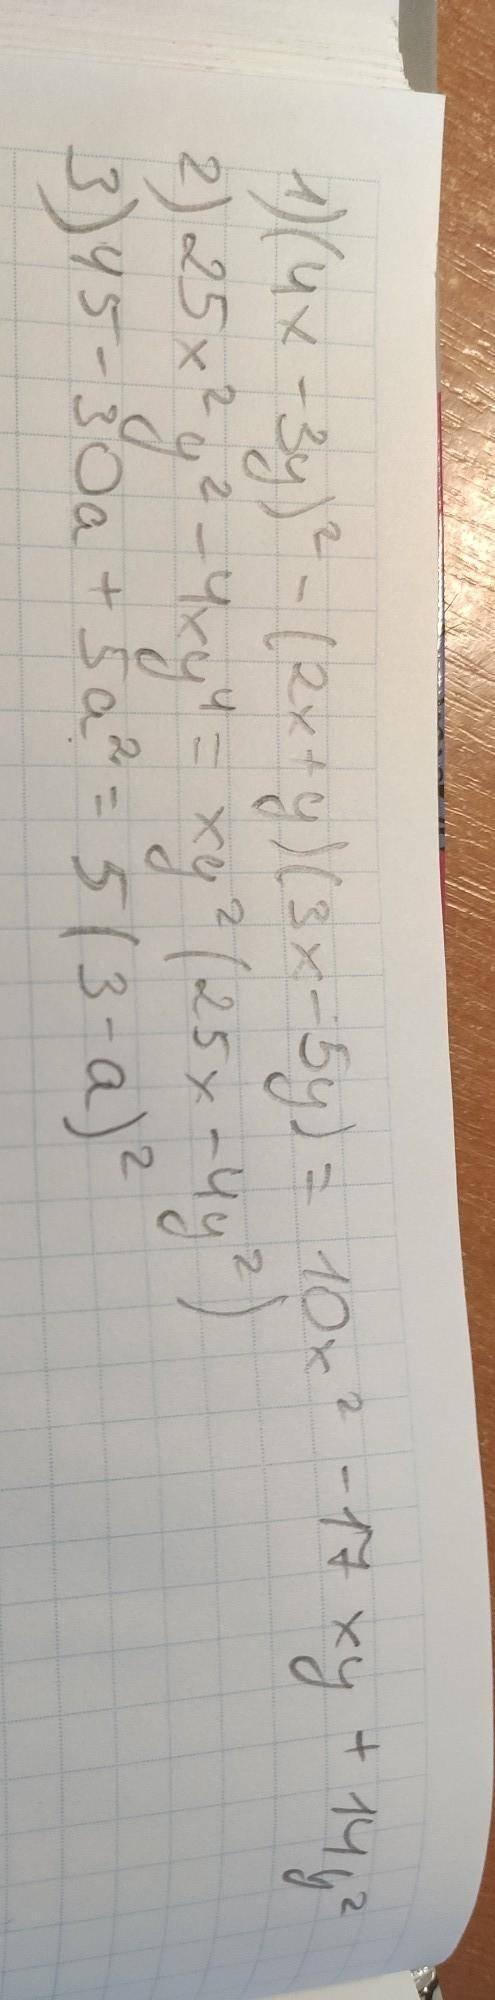 1) (4x - 3y)² - (2x + y)(3x - 5y) = 10x² - 17xy + 14y²
2) 25x²y² - 4xy⁴ = xy²(25x - 4y²)
3) 45 - 30a + 5a² = 5(3 - a)²